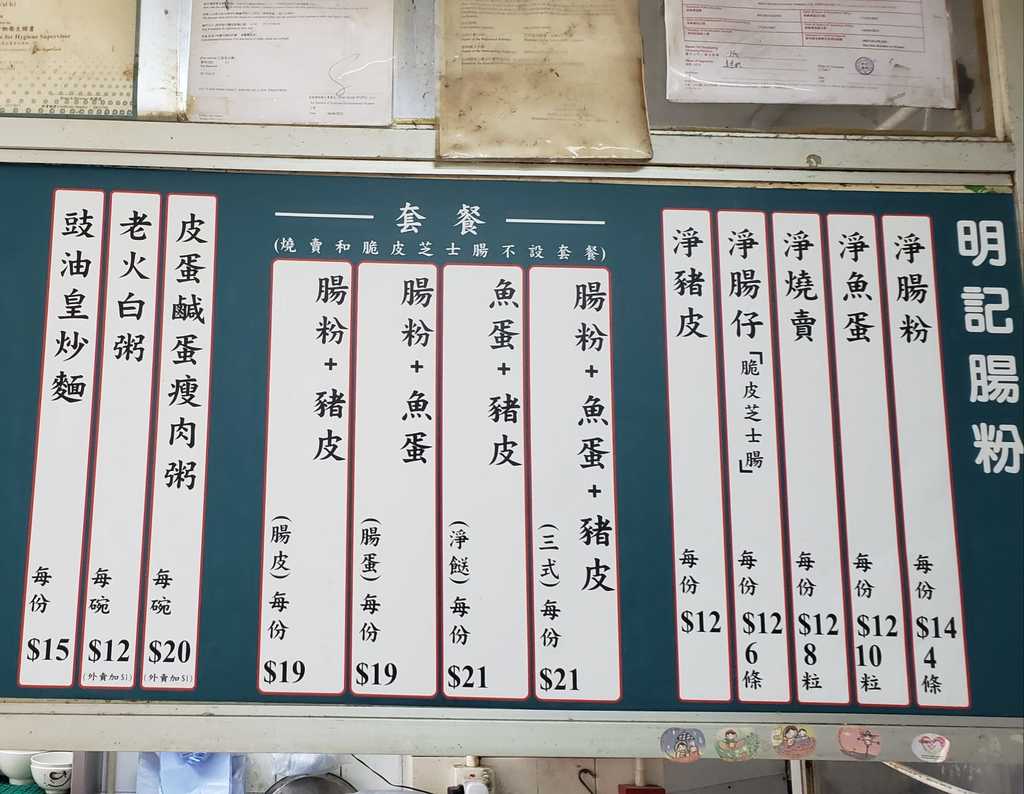 明記腸粉
淨腸粉 每份 $14 4條
淨魚蛋 每份 $12 10粒
淨燒賣 每份 $12 8粒
淨腸仔「脆皮芝士腸」 每份 $12 6條
淨豬皮 每份 $12
套餐
(燒賣和脆皮芝士腸不設套餐)
腸粉+魚蛋+豬皮 (三式) 每份 $21
魚蛋+豬皮 (淨餸) 每份 $21
腸粉+魚蛋 (腸蛋) 每份 $19
腸粉+豬皮 (腸皮) 每份 $19
皮蛋鹹蛋瘦肉粥 每碗 $20 (外賣加$1)
老火白粥 每碗 $12 (外賣加$1)
豉油皇炒麵 每份 $15